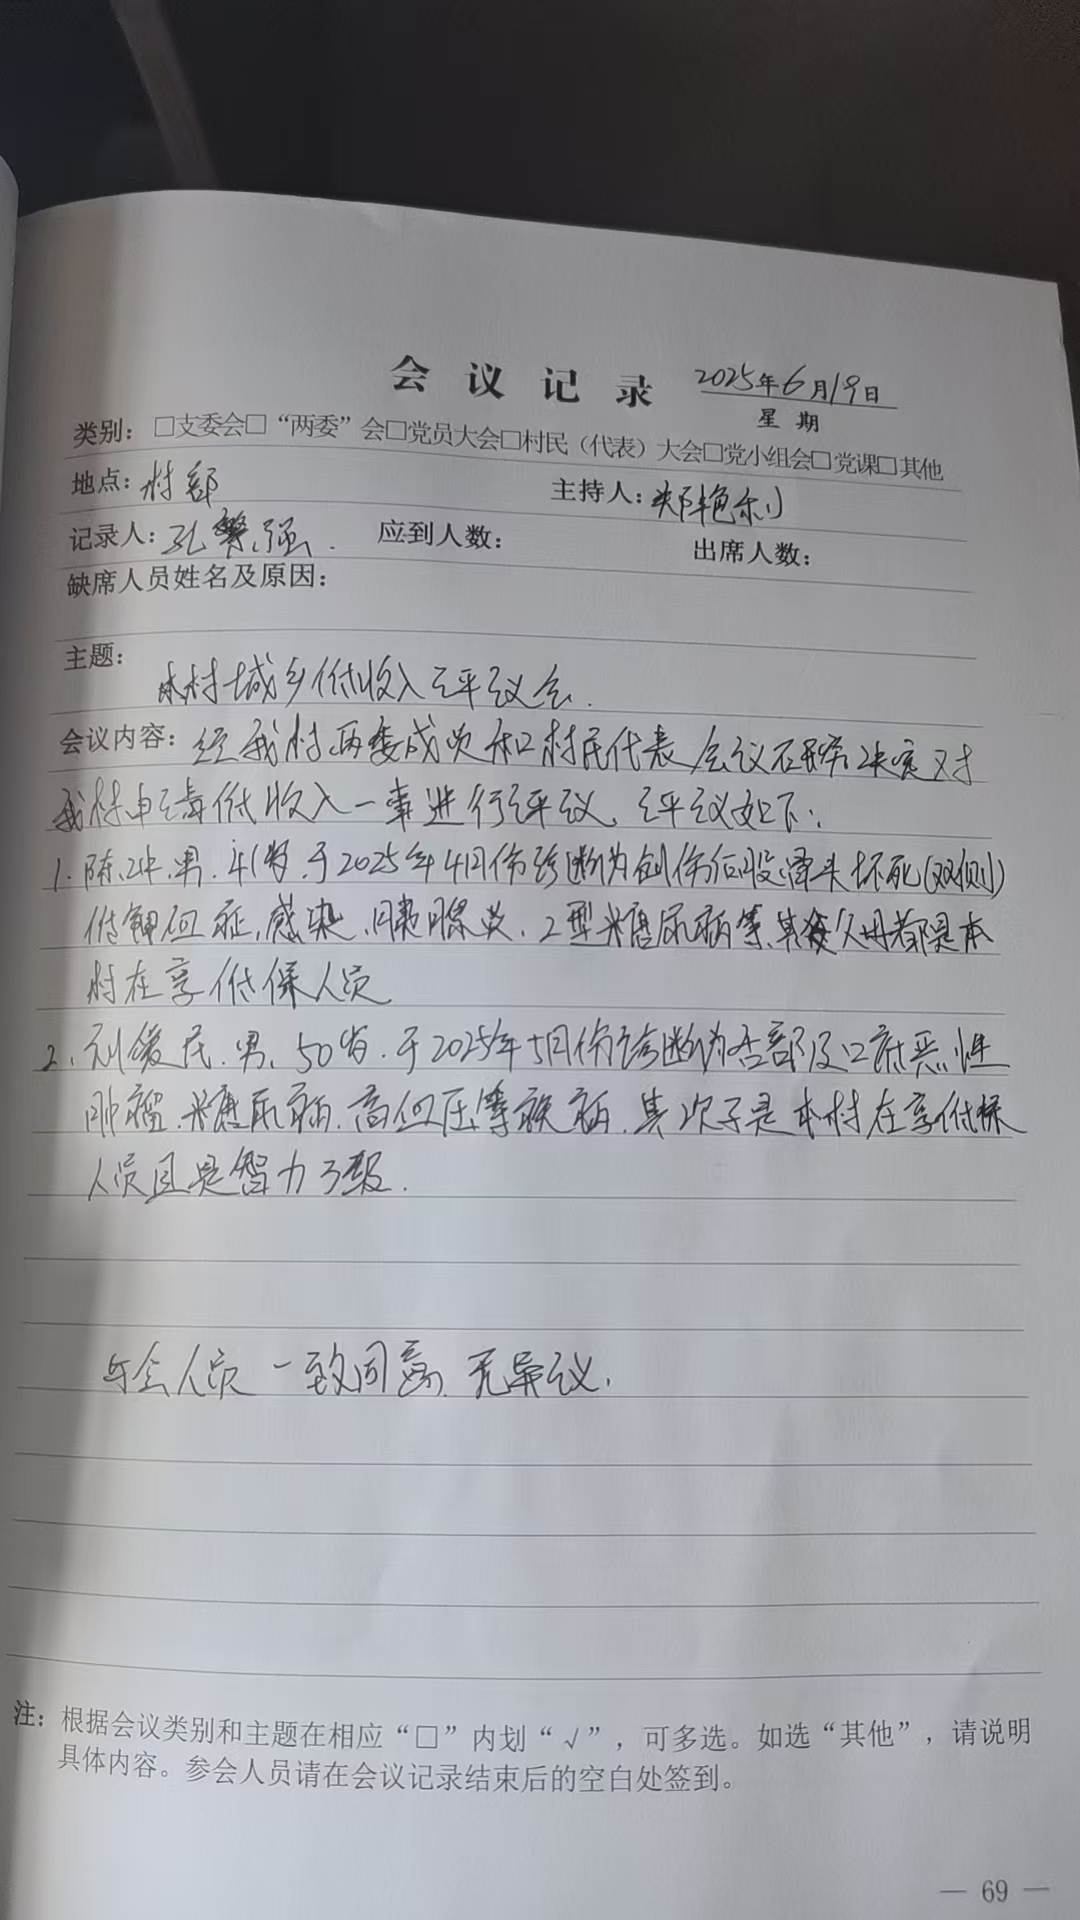 会议记录 2025年6月19日
星期
类别：□支委会□“两委”会□党员大会□村民（代表）大会□党小组会□党课□其他
地点：村部 主持人：艳利
记录人：孔繁强. 应到人数： 出席人数：
缺席人员姓名及原因：
主题：
本村城乡低收入评议会.
会议内容：经我村两委成员和村民代表会议研究决定对
我村申请低收入一事进行评议. 评议如下:
1. 陈冲.男.41岁.于2025年4月份诊断为创伤后股骨头坏死(双侧)
低钾血症,感染,胰腺炎.2型糖尿病等.其父母都是本
村在享低保人员
2. 刘俊民.男.50岁.于2025年5月份诊断为舌部及口底恶性
肿瘤.糖尿病.高血压等疾病.其次子是本村在享低保
人员且是智力3级.
与会人员一致同意.无异议.
注：根据会议类别和主题在相应“□”内划“√”，可多选。如选“其他”，请说明
具体内容。参会人员请在会议记录结束后的空白处签到。
— 69 —